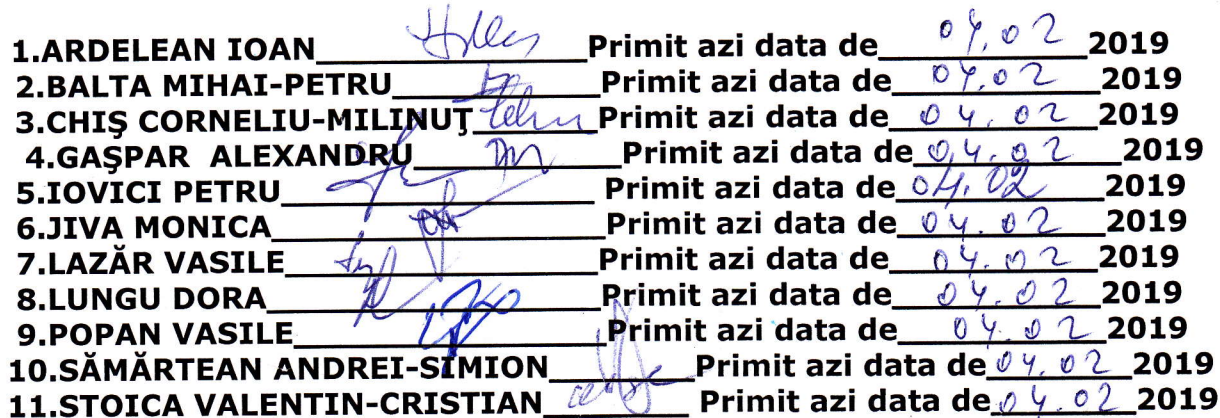 1.ARDELEAN IOAN Primit azi data de 04.02 2019
2.BALTA MIHAI-PETRU Primit azi data de 04.02 2019
3.CHIŞ CORNELIU-MILINUŢ Primit azi data de 04.02 2019
4.GAŞPAR ALEXANDRU Primit azi data de 04.02 2019
5.IOVICI PETRU Primit azi data de 04.02 2019
6.JIVA MONICA Primit azi data de 04.02 2019
7.LAZĂR VASILE Primit azi data de 04.02 2019
8.LUNGU DORA Primit azi data de 04.02 2019
9.POPAN VASILE Primit azi data de 04.02 2019
10.SĂMĂRTEAN ANDREI-SIMION Primit azi data de 04.02 2019
11.STOICA VALENTIN-CRISTIAN Primit azi data de 04.02 2019